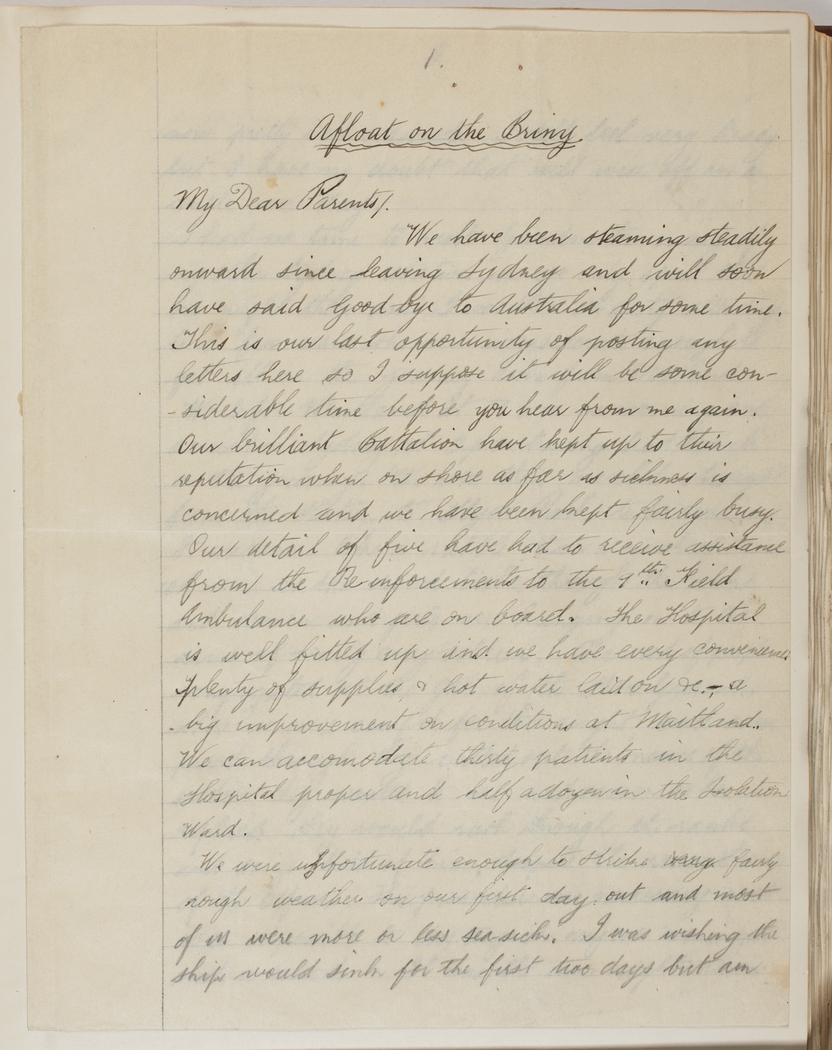 1.
Afloat on the Briny
My Dear Parents/.
We have been steaming steadily
onward since leaving Sydney and will soon
have said Good-bye to Australia for some time.
This is our last opportunity of posting any
letters here so I suppose it will be some con-
-siderable time before you hear from me again.
Our brilliant Battalion have kept up to their
reputation when on shore as far as sickness is
concerned and we have been kept fairly busy.
Our detail of five have had to receive assistance
from the Re-inforcements to the 1th Field
Ambulance who are on board. The Hospital
is well fitted up and we have every convenience
plenty of supplies, & hot water laid on &c - a
big improvement on conditions at Maitland.
We can accomodate thirty patients in the
Hospital proper and half a dozen in the Isolation
Ward.
We were unfortunate enough to strike fairly
rough weather on our first day out and most
of us were more or less sea-sick. I was wishing the
ship would sink for the first two days but am